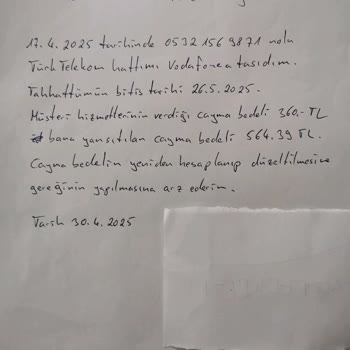 17.4.2025 tarihinde 0532 156 9871 nolu
Türk Telekom hattımı Vodafonea taşıdım.
Tahhattümün bitiş tarihi 26.5.2025.
Müşteri hizmetlerinin verdiği cayma bedeli 360,-TL
bana yansıtılan cayma bedeli 564.39 TL.
Cayma bedelin yeniden hesaplanıp düzeltilmesine
gereğinin yapılmasına arz ederim.
Tarih 30.4.2025